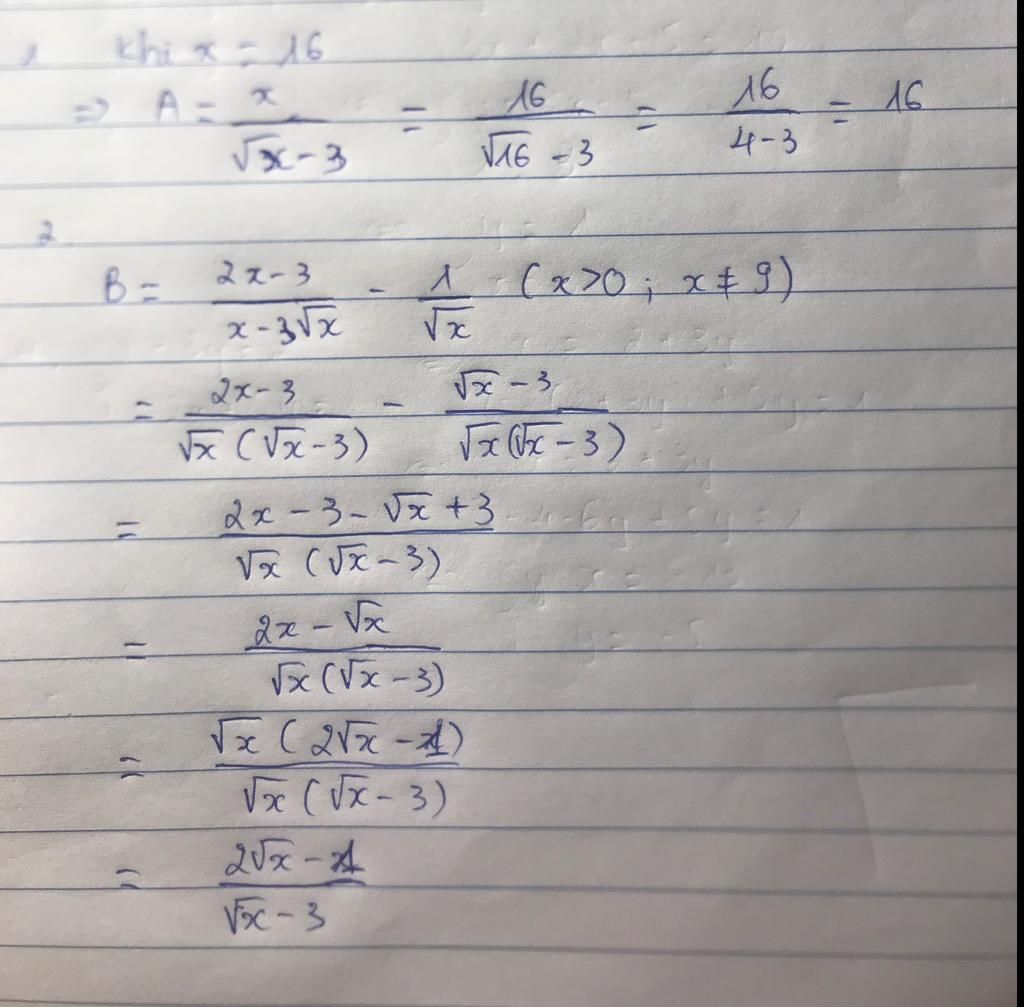 1 Khi x = 16
=> A = x/(√x - 3) = 16/(√16 - 3) = 16/(4 - 3) = 16
2
B = (2x - 3)/(x - 3√x) - 1/√x (x > 0 ; x ≠ 9)
= (2x - 3)/(√x (√x - 3)) - (√x - 3)/(√x (√x - 3))
= (2x - 3 - √x + 3)/(√x (√x - 3))
= (2x - √x)/(√x (√x - 3))
= (√x (2√x - 1))/(√x (√x - 3))
= (2√x - 1)/(√x - 3)